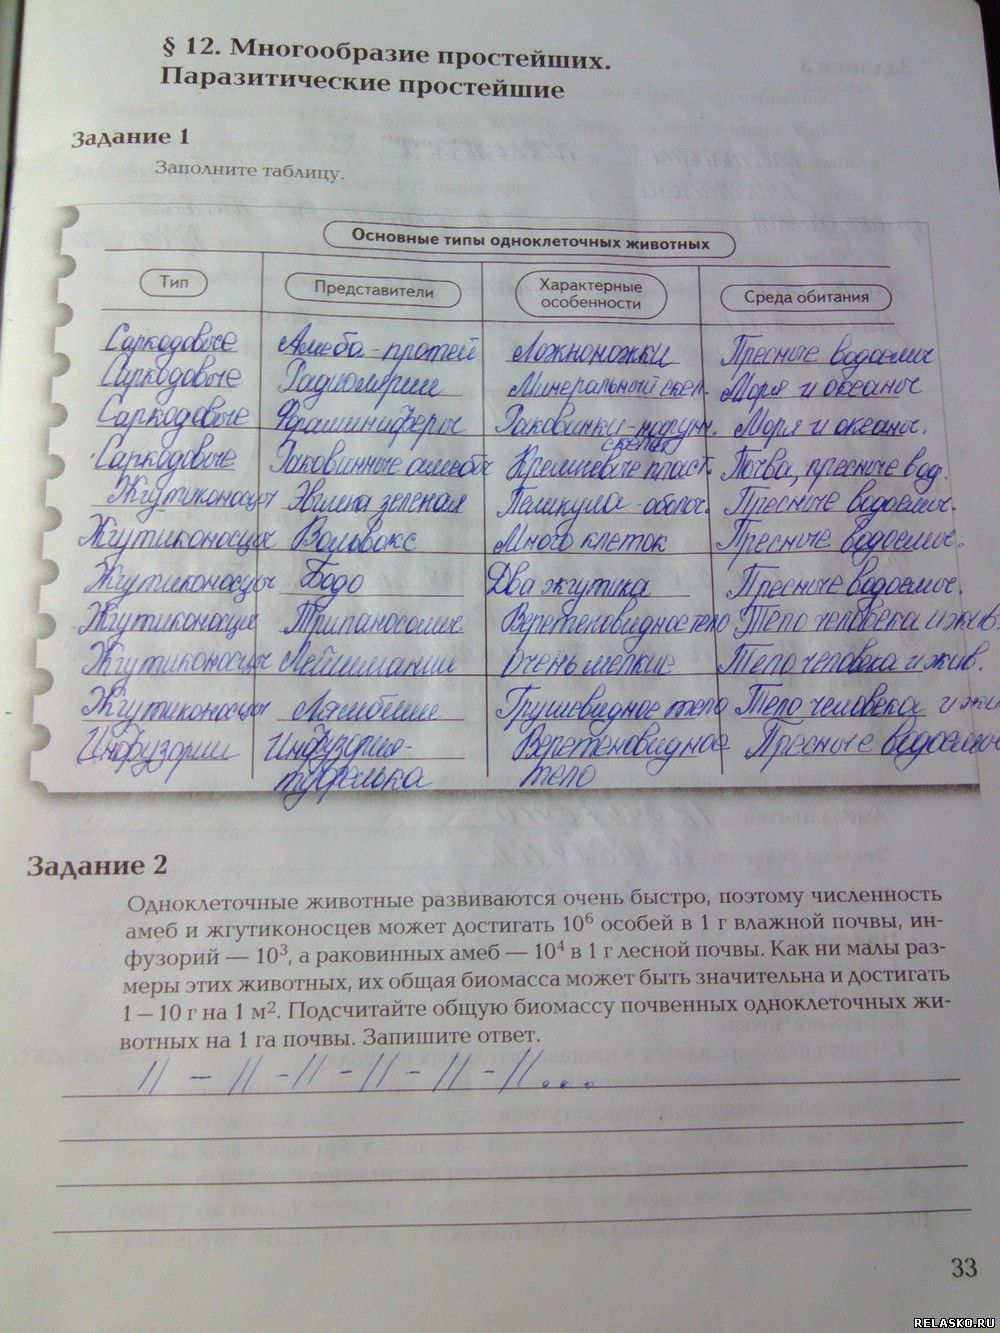 § 12. Многообразие простейших.
Паразитические простейшие
Задание 1
Заполните таблицу.
Основные типы одноклеточных животных
Тип Представители Характерные особенности Среда обитания
Саркодовые Амеба-протей Ложноножки Пресные водоемы
Саркодовые Радиолярии Минеральный скел. Моря и океаны
Саркодовые Фораминиферы Раковинки-наружн. скелет Моря и океаны.
Саркодовые Раковинные амебы Кремниевые пласт. Почва, пресные вод.
Жгутиконосцы Эвглена зеленая Пелликула-оболоч. Пресные водоемы.
Жгутиконосцы Вольвокс Много клеток Пресные водоемы.
Жгутиконосцы Бодо Два жгутика Пресные водоемы.
Жгутиконосцы Трипаносомы Веретеновидное тело Тело человека и жив.
Жгутиконосцы Лейшмании Очень мелкие Тело человека и жив.
Жгутиконосцы Лямблии Грушевидное тело Тело человека и жи
Инфузории Инфузория- Веретеновидное Пресные водоемы
туфелька тело
Задание 2
Одноклеточные животные развиваются очень быстро, поэтому численность
амеб и жгутиконосцев может достигать 10⁶ особей в 1 г влажной почвы, ин-
фузорий — 10³, а раковинных амеб — 10⁴ в 1 г лесной почвы. Как ни малы раз-
меры этих животных, их общая биомасса может быть значительна и достигать
1 – 10 г на 1 м². Подсчитайте общую биомассу почвенных одноклеточных жи-
вотных на 1 га почвы. Запишите ответ.
// – // - // - // - // - // ...
33
RELASKO.RU